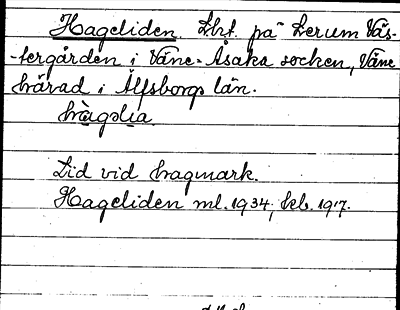 Hageliden. Lht. på Lerum Väs-
-tergården i Väne-Åsaka socken, Väne
härad i Älfsborgs län.
hàgslia
Lid vid hagmark.
Hageliden ml. 1934, kb. 1917.